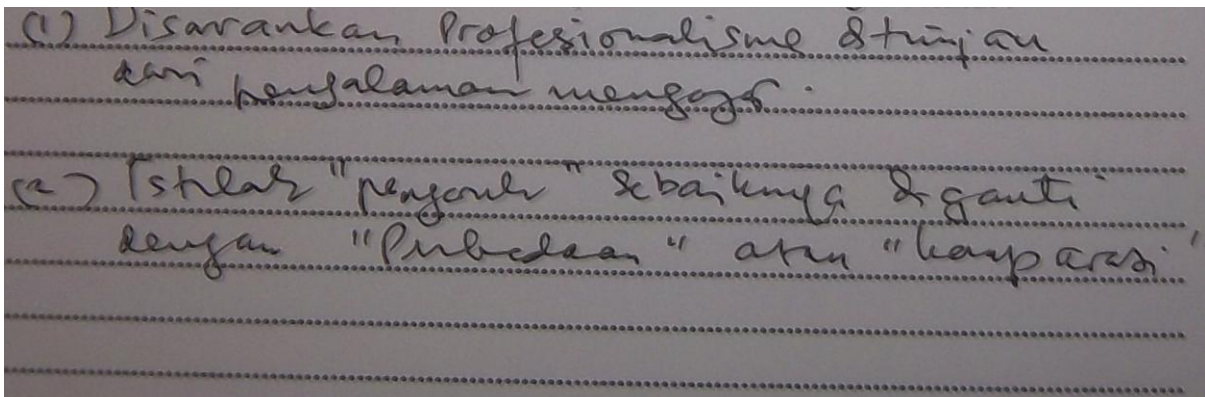 (1) Disarankan Profesionalisme ditinjau
dari pengalaman mengajar.
(2) Istilah "pengaruh" sebaiknya diganti
dengan "Perbedaan" atau "komparasi"